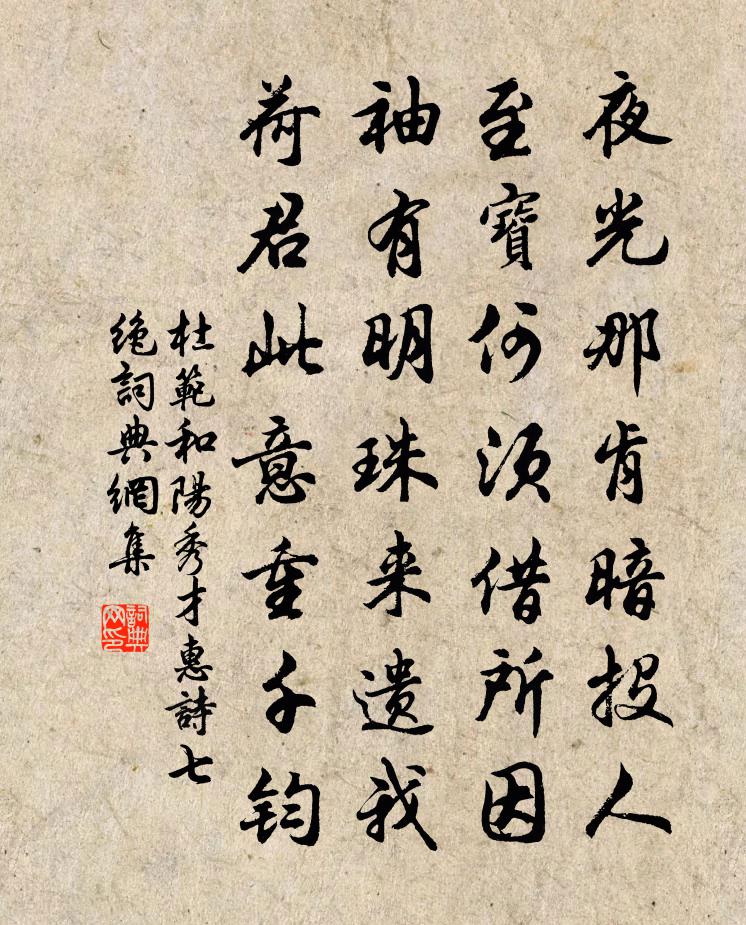 夜光那肯暗投人
至寶何須借所因
袖有明珠来遺我
荷君此意重千鈞
杜範和陽秀才惠詩七
絶詞典網集
詞典
网印